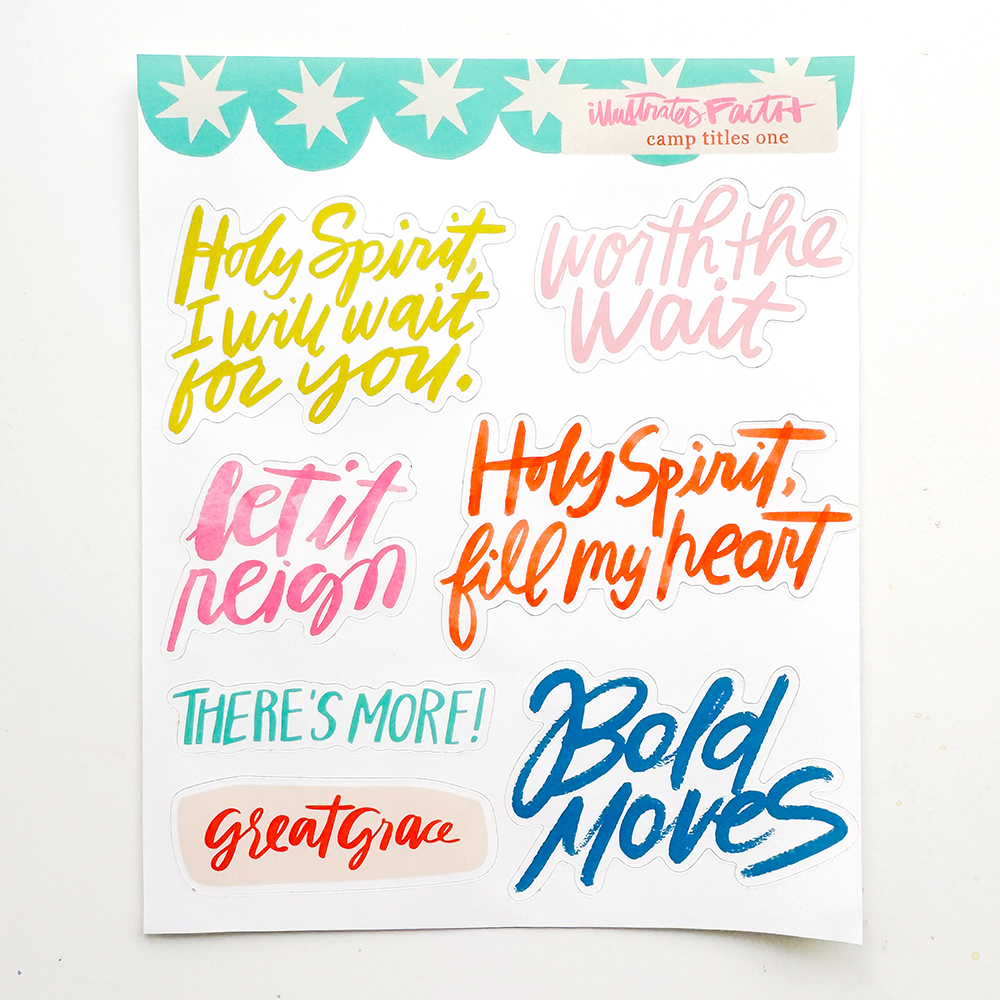 illustrated Faith
camp titles one
Holy Spirit,
I will wait
for you.
worth the
wait
let it
reign
Holy Spirit,
fill my heart
THERE'S MORE!
great grace
Bold
Moves